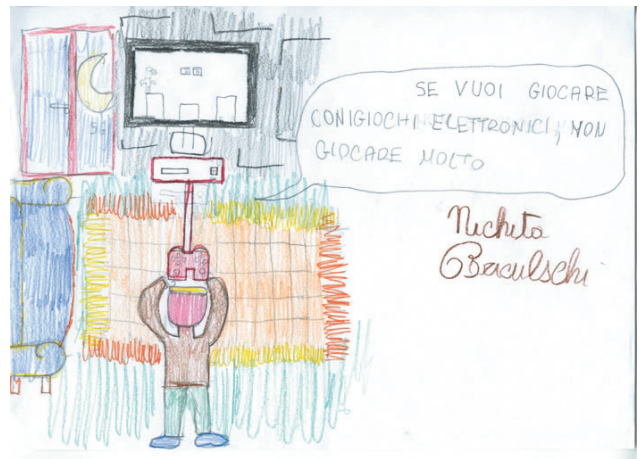 SE VUOI GIOCARE
CONIGIOCHI ELETTRONICI, NON
GIOCARE MOLTO
Nichita